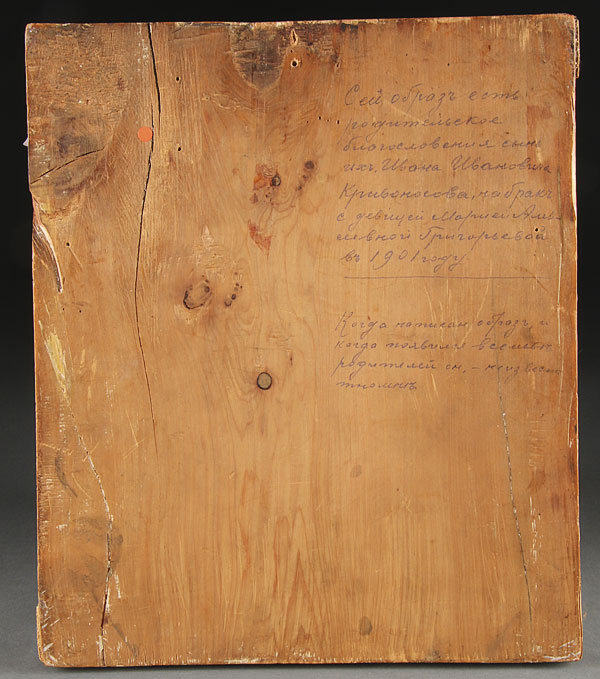 Сей образъ есть
родительское
благословения сына
ихъ, Ивана Иванович
Кривоносова, на бракъ
с девицей Марией
Григорьевой
въ 1901 году.
Когда написан образ, и
когда появился в семье
родителей он, – неизвест